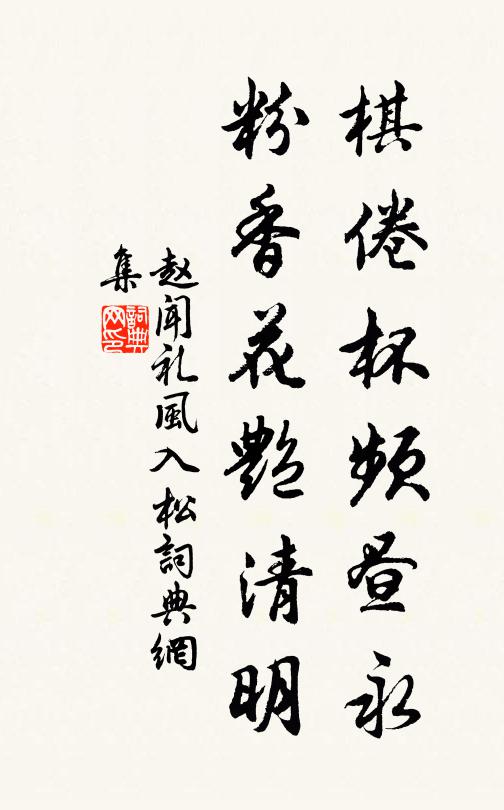 棋倦杯频昼永
粉香花艷清明
赵闻礼風入松詞典網
集
詞典
网印